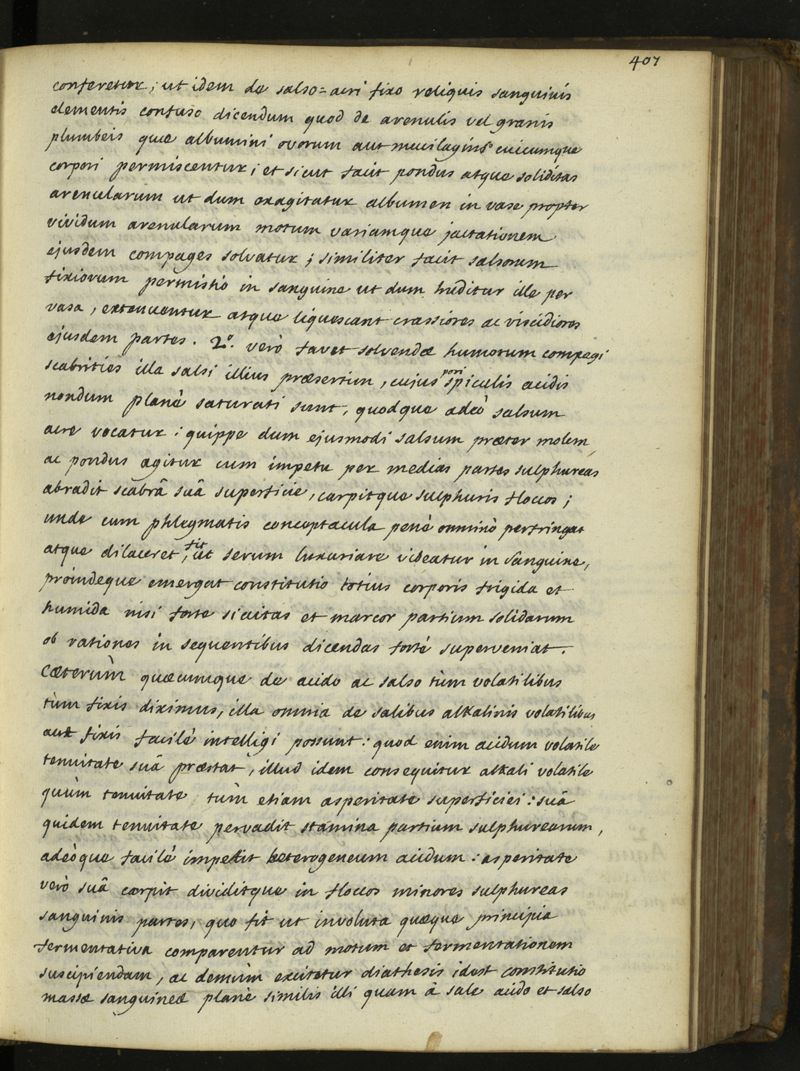 407
conferetur; ut idem de salso=acri fixo reliquis sanguinis
elementis confuso dicendum quod de arenulis vel granis
plumbeis quæ albumini ovorum aut mucilagini cuicumque
corpori permiscentur; et sicut facit pondus atque soliditas
arenularum ut dum exagitatur albumen in vase propter
vividum arenularum motum variamque jactationem
ejusdem compages solvatur; similiter facit salsorum
fixiorum permistio in sanguine ut dum truditur ille per
vasa, extenuentur atque liquescant crassiores ac viscidiores
ejusdem partes. 2º. verò favet solvendæ humorum compagi
scabrities illa salsi illius præsertim, cujus pori spiculis acidis
nondum planè saturati sunt, quodque adeò salsum
acre vocatur: quippe dum ejusmodi salsum præter molem
ac pondus agitur cum impetu per medias partes sulphureas
abradit scabrâ suâ superficie, carpitque sulphuris floccos;
unde cum phlegmatis conceptacula penè omninò perfringat
atque dilaceret, fit ut serum luxuriare videatur in sanguine,
proindeque emergat constitutio totius corporis frigida et
humida nisi forte siccitas et marcor partium solidarum
ob rationes in sequentibus dicendas fortè superveniat.
Cæterùm quæcumque de acido ac salso tùm volatilibus
tùm fixis diximus, illa omnia de salibus alkalinis volatilibus
aut fixis facilè intelligi possunt: quod enim acidum volatile
tenuitate suâ præstat, illud idem consequitur alkali volatile
quùm tenuitate tùm etiam asperitate superficiei: suâ
quidem tenuitate pervadit stamina partium sulphurearum,
adeòque facilè impetit heterogeneum acidum: asperitate
verò suâ carpit dividitque in floccos minores sulphureas
sanguinis partes, quo fit ut involuta quæque principia
fermentativa comparentur ad motum et fermentationem
suscipiendam, ac demùm excitetur diathesis idest constitutio
massæ sanguineæ planè similis illi quam à sale acido et salso